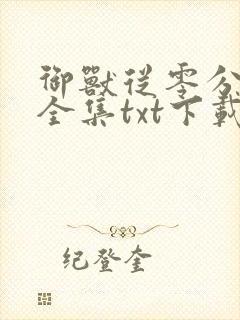 御獸從零分
全集txt下載
纪登奎